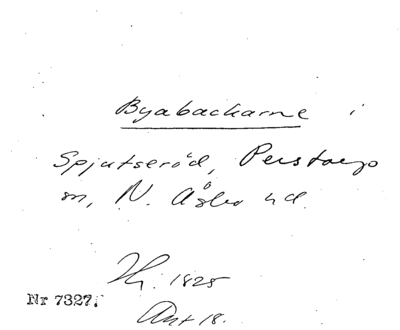 Byabackarne i
Spjutseröd, Perstorps
sn, N. Åsbo hd.
Hj. 1825
Nr 7327.
Ant 18.